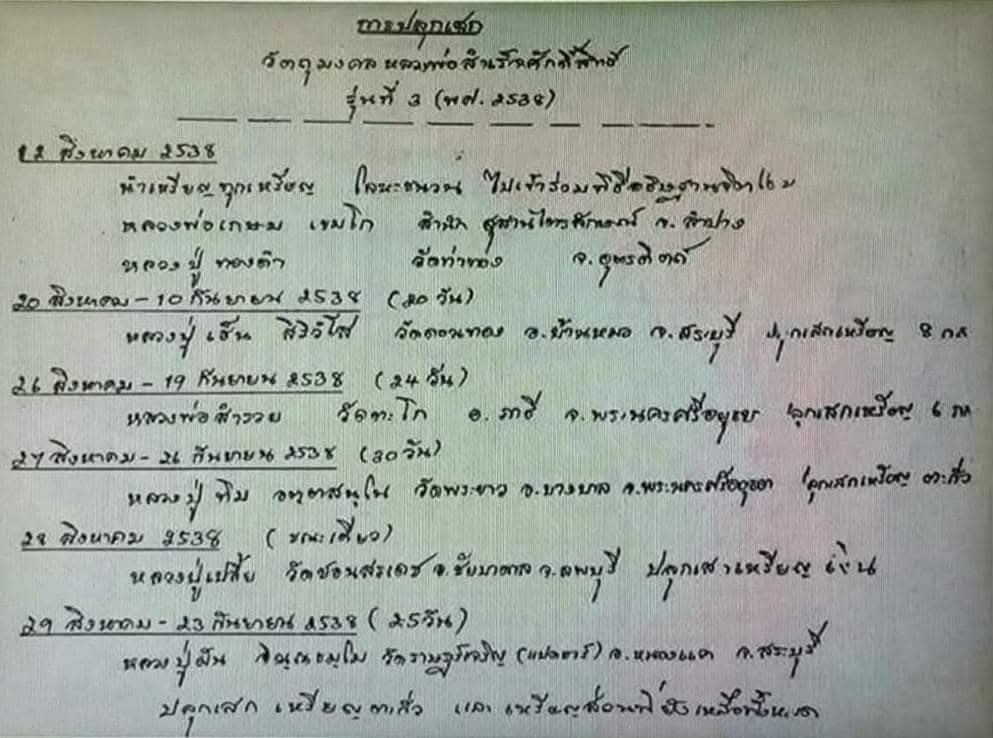 การปลุกเสก
วัตถุมงคล หลวงพ่อสำเร็จศักดิ์สิทธิ์
รุ่นที่ 3 (พศ. 2538)
12 สิงหาคม 2538
นำเหรียญทุกเหรียญ โลหะชนวน ไปเข้าร่วมพิธีอธิษฐานจิตโดย
หลวงพ่อเกษม เขมโก สำนัก สุสานไตรลักษณ์ จ. ลำปาง
หลวงปู่ ทองดำ วัดท่าทอง จ. อุตรดิตถ์
20 สิงหาคม - 10 กันยายน 2538 (20 วัน)
หลวงปู่ เธียร สิริวิโส วัดดอนทอง อ.บ้านหมอ จ.สระบุรี ปลุกเสกเหรียญ 8
26 สิงหาคม - 19 กันยายน 2538 (24 วัน)
หลวงพ่อสำรวย วัดตะโก อ. ภาชี จ. พระนครศรีอยุธยา ปลุกเสกเหรียญ 6
27 สิงหาคม - 26 กันยายน 2538 (30 วัน)
หลวงปู่ ทิม อตฺตสนฺโต วัดพระขาว อ.บางบาล จ.พระนครศรีอยุธยา ปลุกเสกเหรียญ ตะกั่ว
28 สิงหาคม 2538 (ขณะเดียว)
หลวงปู่เปลี้ย วัดชอนสารเดช อ.ชัยบาดาล จ.ลพบุรี ปลุกเสกเหรียญ เงิน
29 สิงหาคม - 23 กันยายน 2538 (25 วัน)
หลวงปู่มัน วัดราษฎร์เจริญ (แปดอาร์) อ.หนองแค จ.สระบุรี
ปลุกเสก เหรียญตะกั่ว และ เหรียญส่วนที่ยังเหลือทั้งหมด